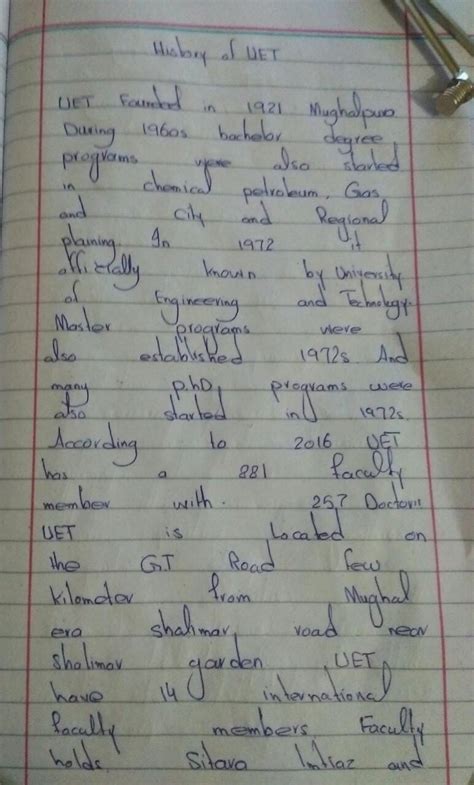 History of UET
UET Founded in 1921 Mughalpura
During 1960s bachelor degree
programs were also started
in chemical petroleum, Gas
and city and Regional
planing. In 1972 it
officially known by University
of Engineering and Technology.
Master programs were
also established 1972s. And
many p.hD, programs were
also started in 1972s.
According to 2016 UET
has a 881 faculty
member with. 257 Doctorit
UET is Located on
the GT Road few
kilometer from Mughal
era shahmar, road near
shalimar garden. UET,
have 14 international
faculty members. Faculty
holds. Sitara Imtiaz and